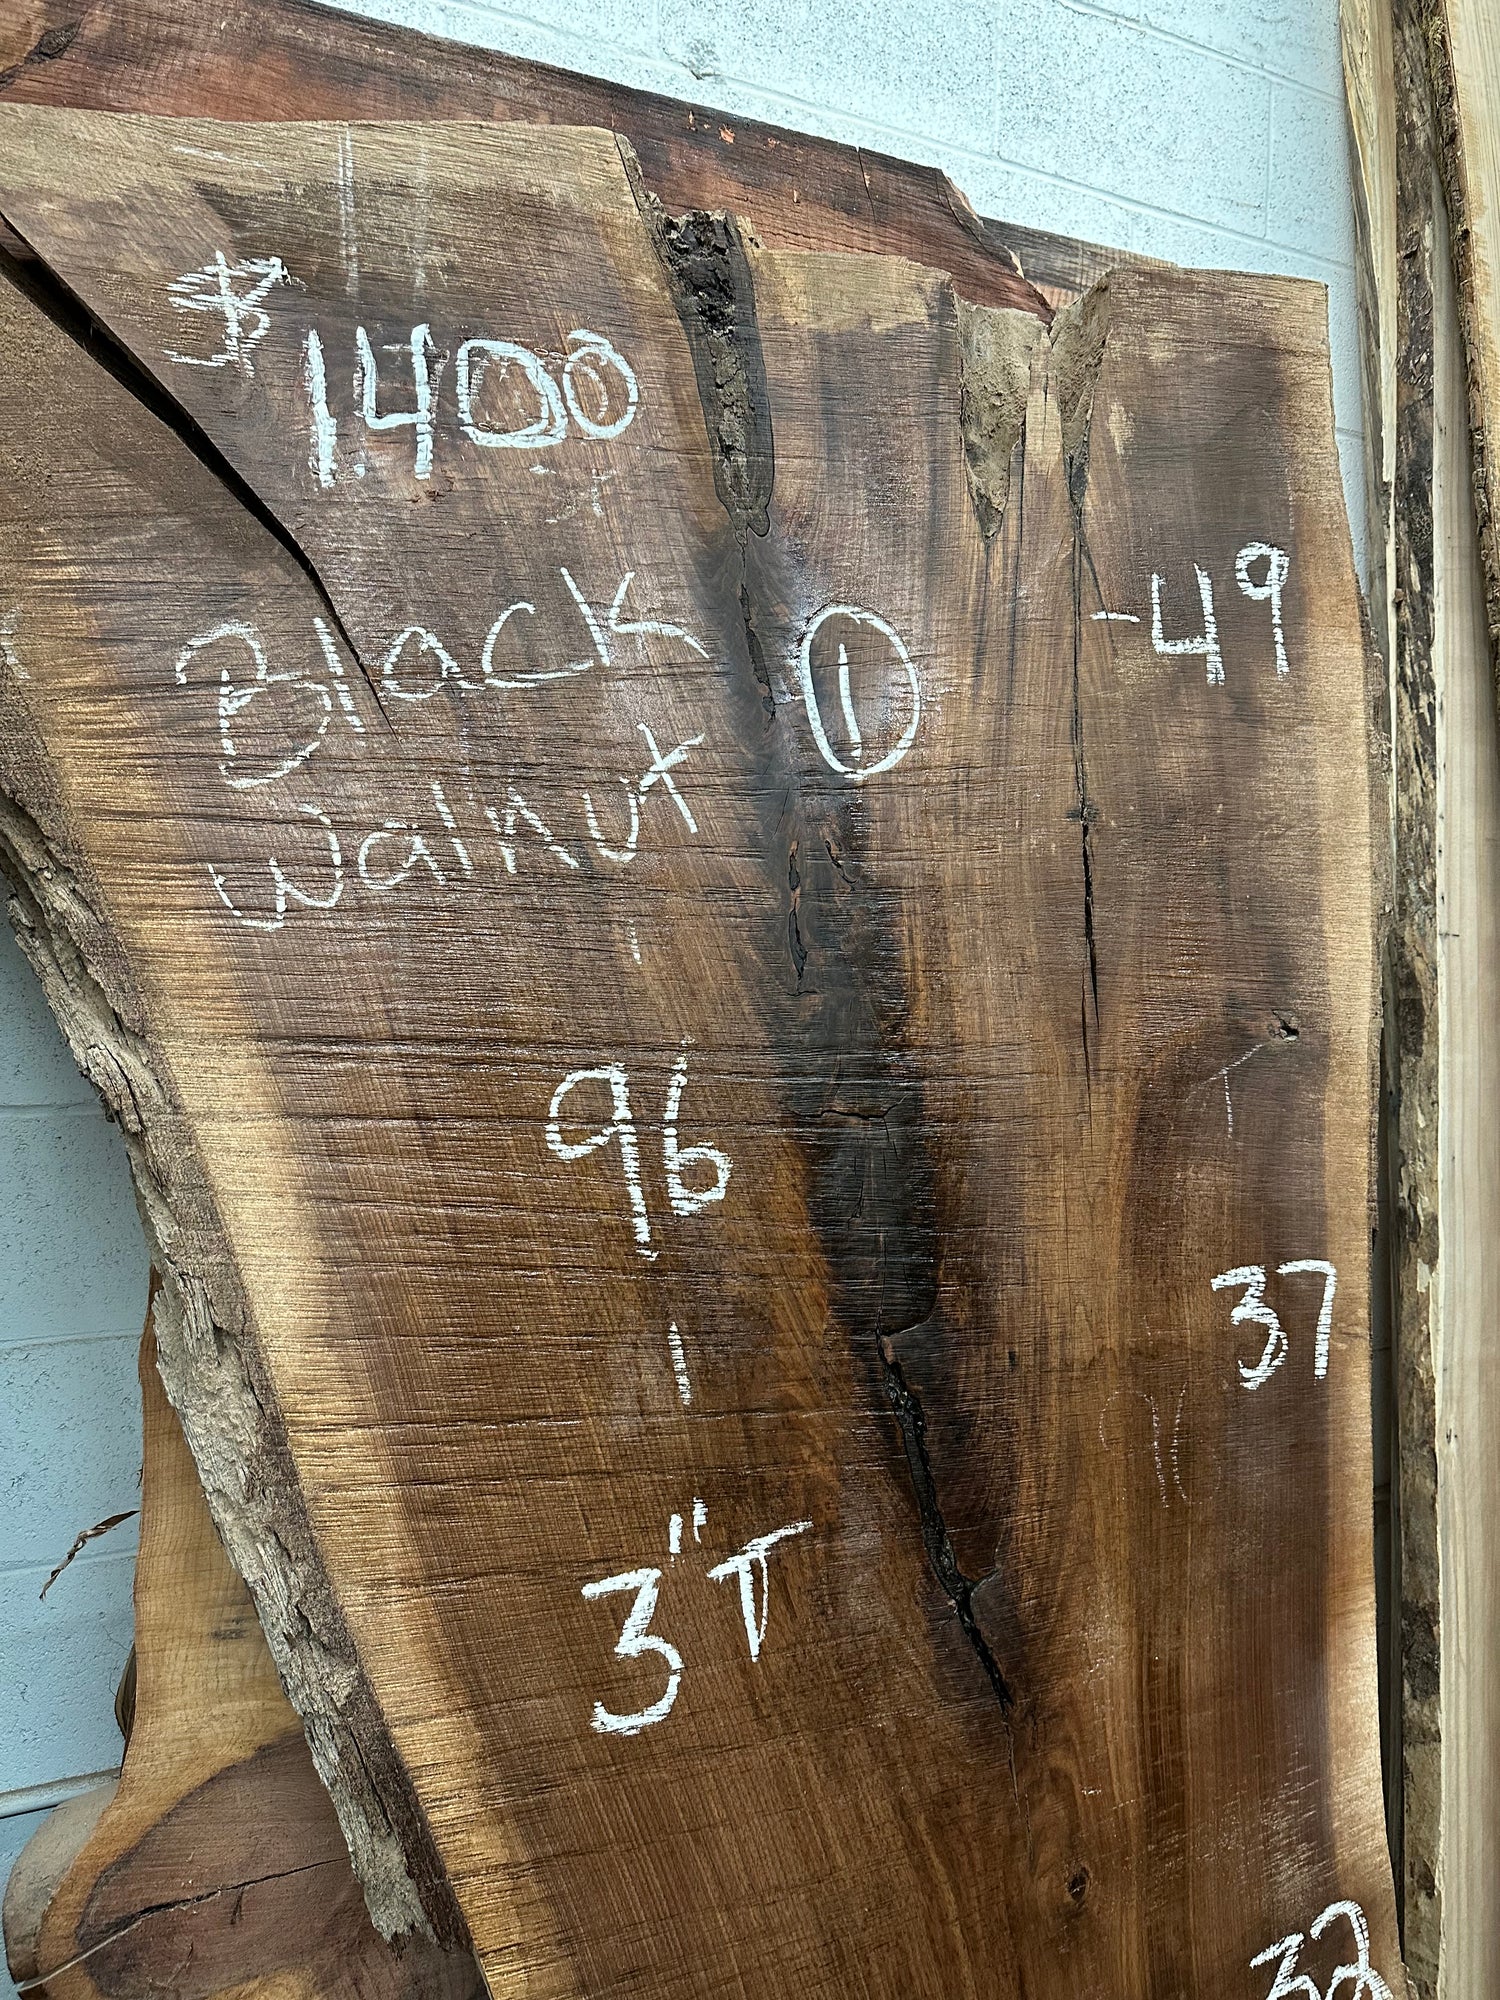 $1,400
Black
Walnut
①
-49
96
37
3"T
32